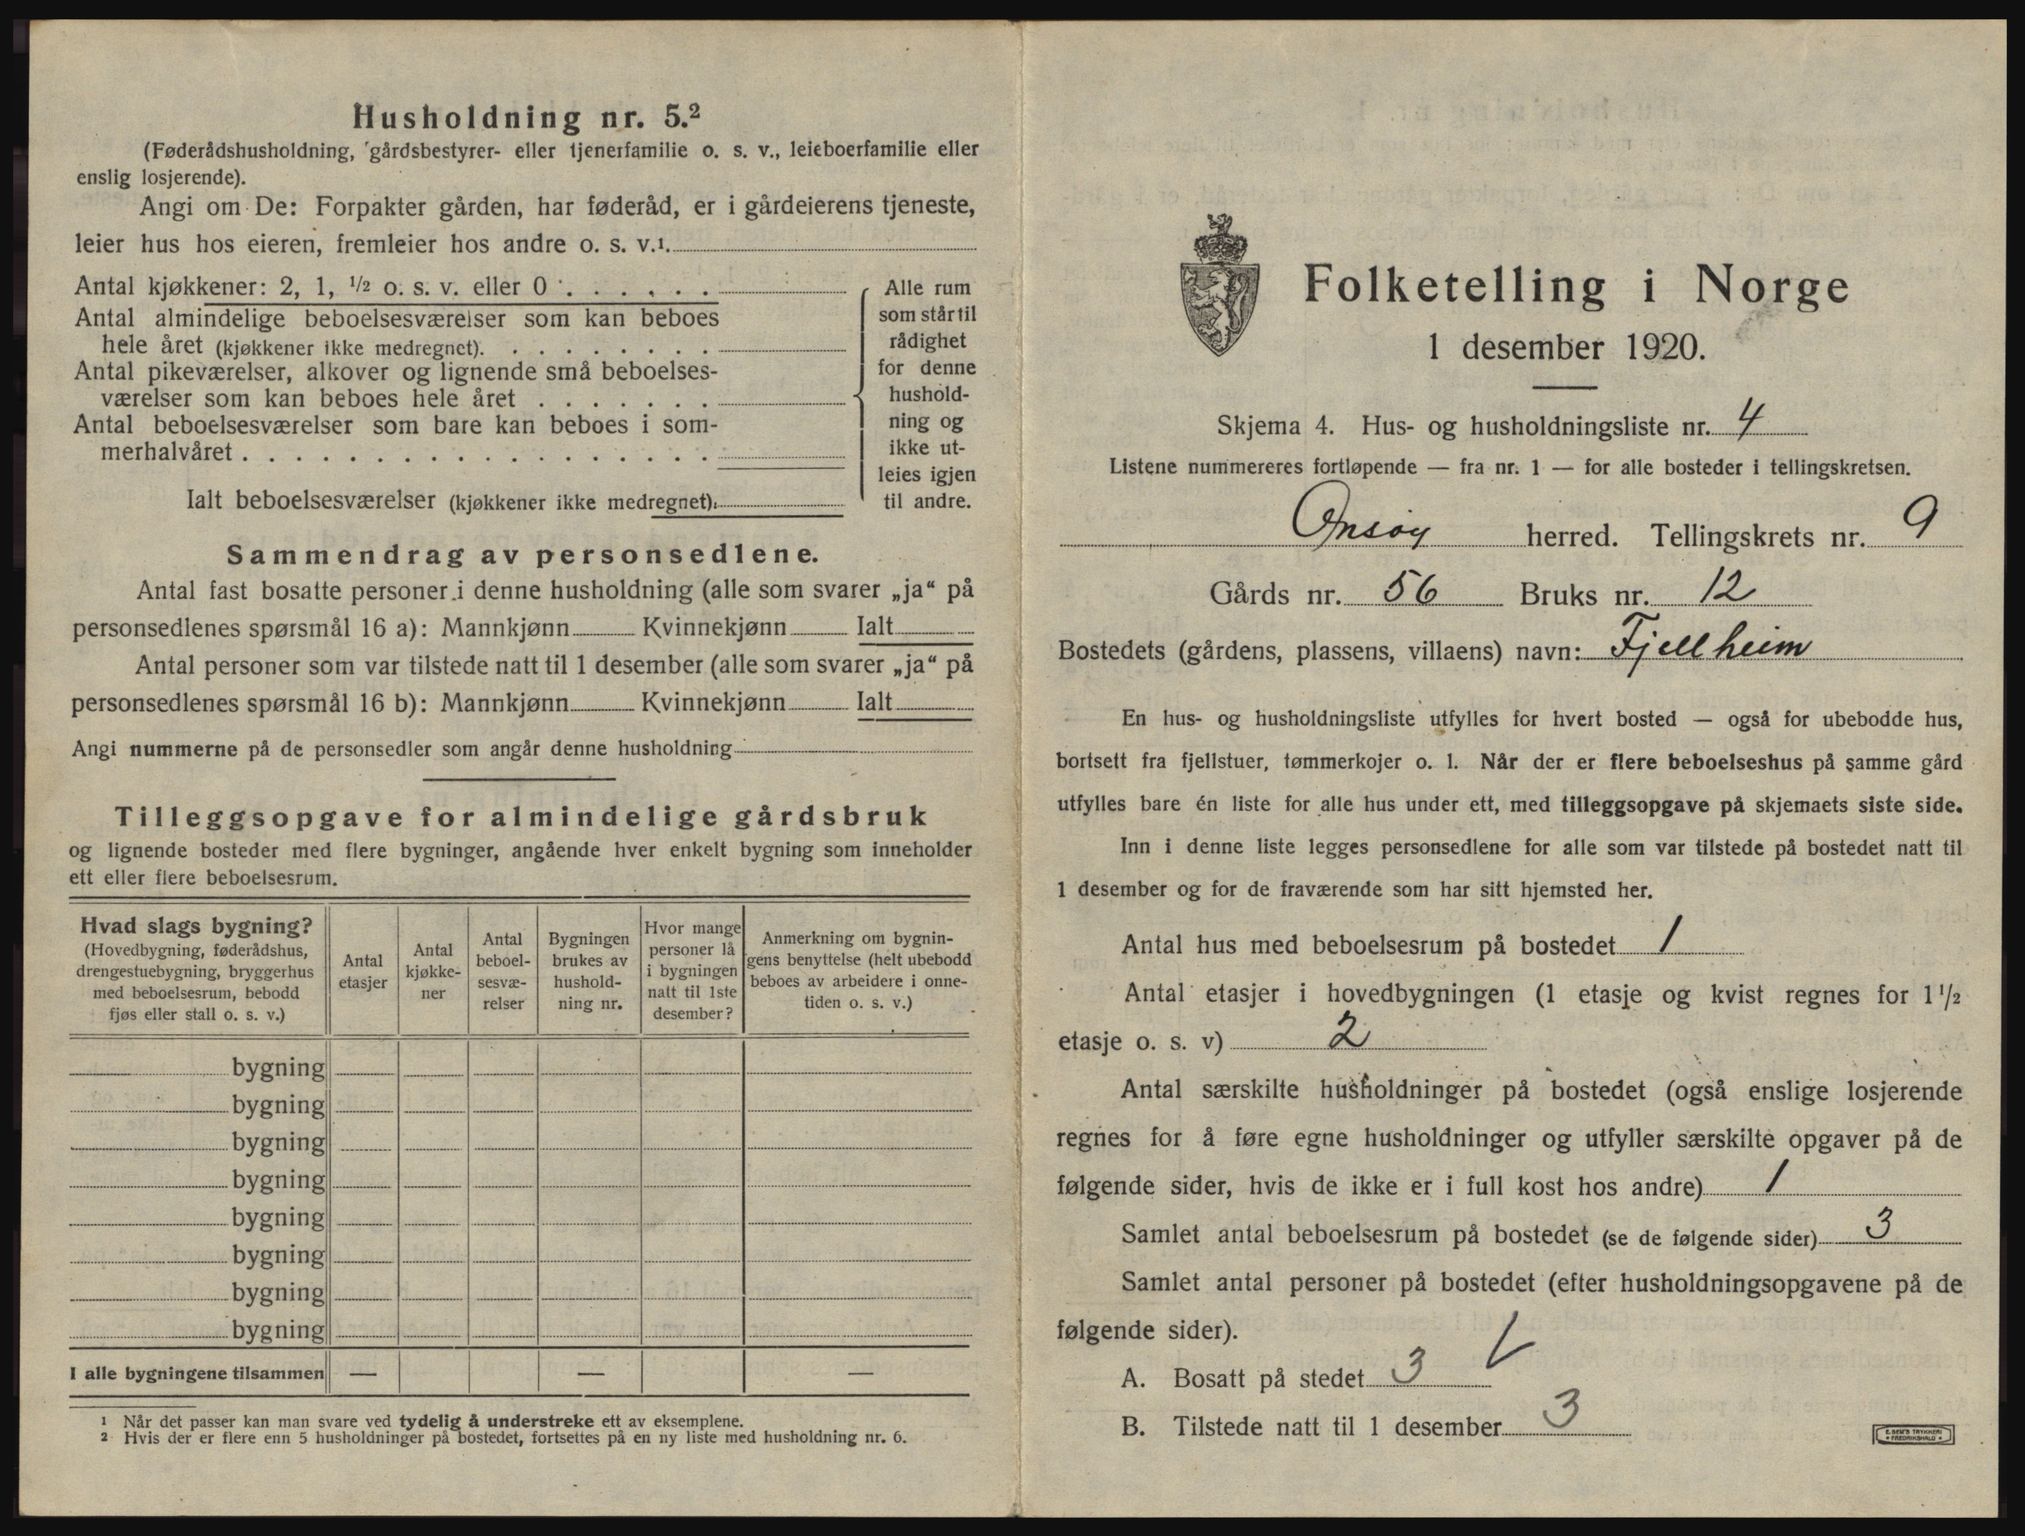 Husholdning nr. 5.²
(Føderådshusholdning, gårdsbestyrer- eller tjenerfamilie o. s. v., leieboerfamilie eller
enslig losjerende).
Angi om De: Forpakter gården, har føderåd, er i gårdeierens tjeneste,
leier hus hos eieren, fremleier hos andre o. s. v.¹.
Antal kjøkkener: 2, 1, ½ o. s. v. eller 0 . . . . . .
Antal almindelige beboelsesværelser som kan beboes
hele året (kjøkkener ikke medregnet). . . . . . . . .
Antal pikeværelser, alkover og lignende små beboelses-
værelser som kan beboes hele året . . . . . . .
Antal beboelsesværelser som bare kan beboes i som-
merhalvåret . . . . . . . . . . . . . . . . . .
Ialt beboelsesværelser (kjøkkener ikke medregnet).
Alle rum
som står til
rådighet
for denne
hushold-
ning og
ikke ut-
leies igjen
til andre.
Sammendrag av personsedlene.
Antal fast bosatte personer i denne husholdning (alle som svarer „ja“ på
personsedlenes spørsmål 16 a): Mannkjønn Kvinnekjønn Ialt
Antal personer som var tilstede natt til 1 desember (alle som svarer „ja“ på
personsedlenes spørsmål 16 b): Mannkjønn Kvinnekjønn Ialt
Angi nummerne på de personsedler som angår denne husholdning
Tilleggsopgave for almindelige gårdsbruk
og lignende bosteder med flere bygninger, angående hver enkelt bygning som inneholder
ett eller flere beboelsesrum.
Hvad slags bygning?
(Hovedbygning, føderådshus,
drengestuebygning, bryggerhus
med beboelsesrum, bebodd
fjøs eller stall o. s. v.)
Antal
etasjer
Antal
kjøkke-
ner
Antal
beboel-
sesvæ-
relser
Bygningen
brukes av
hushold-
ning nr.
Hvor mange
personer lå
i bygningen
natt til 1ste
desember?
Anmerkning om bygnin-
gens benyttelse (helt ubebodd
beboes av arbeidere i onne-
tiden o. s. v.)
bygning
bygning
bygning
bygning
bygning
bygning
bygning
bygning
I alle bygningene tilsammen — — —
¹ Når det passer kan man svare ved tydelig å understreke ett av eksemplene.
² Hvis der er flere enn 5 husholdninger på bostedet, fortsettes på en ny liste med husholdning nr. 6.
Folketelling i Norge
1 desember 1920.
Skjema 4. Hus- og husholdningsliste nr. 4
Listene nummereres fortløpende — fra nr. 1 — for alle bosteder i tellingskretsen.
Onsøy herred. Tellingskrets nr. 9
Gårds nr. 56 Bruks nr. 12
Bostedets (gårdens, plassens, villaens) navn: Fjellheim
En hus- og husholdningsliste utfylles for hvert bosted — også for ubebodde hus,
bortsett fra fjellstuer, tømmerkojer o. l. Når der er flere beboelseshus på samme gård
utfylles bare én liste for alle hus under ett, med tilleggsopgave på skjemaets siste side.
Inn i denne liste legges personsedlene for alle som var tilstede på bostedet natt til
1 desember og for de fraværende som har sitt hjemsted her.
Antal hus med beboelsesrum på bostedet 1
Antal etasjer i hovedbygningen (1 etasje og kvist regnes for 1½
etasje o. s. v) 2
Antal særskilte husholdninger på bostedet (også enslige losjerende
regnes for å føre egne husholdninger og utfyller særskilte opgaver på de
følgende sider, hvis de ikke er i full kost hos andre) 1
Samlet antal beboelsesrum på bostedet (se de følgende sider) 3
Samlet antal personer på bostedet (efter husholdningsopgavene på de
følgende sider).
A. Bosatt på stedet 3
B. Tilstede natt til 1 desember 3
E. SEM'S TRYKKERI
• FREDRIKSHALD •